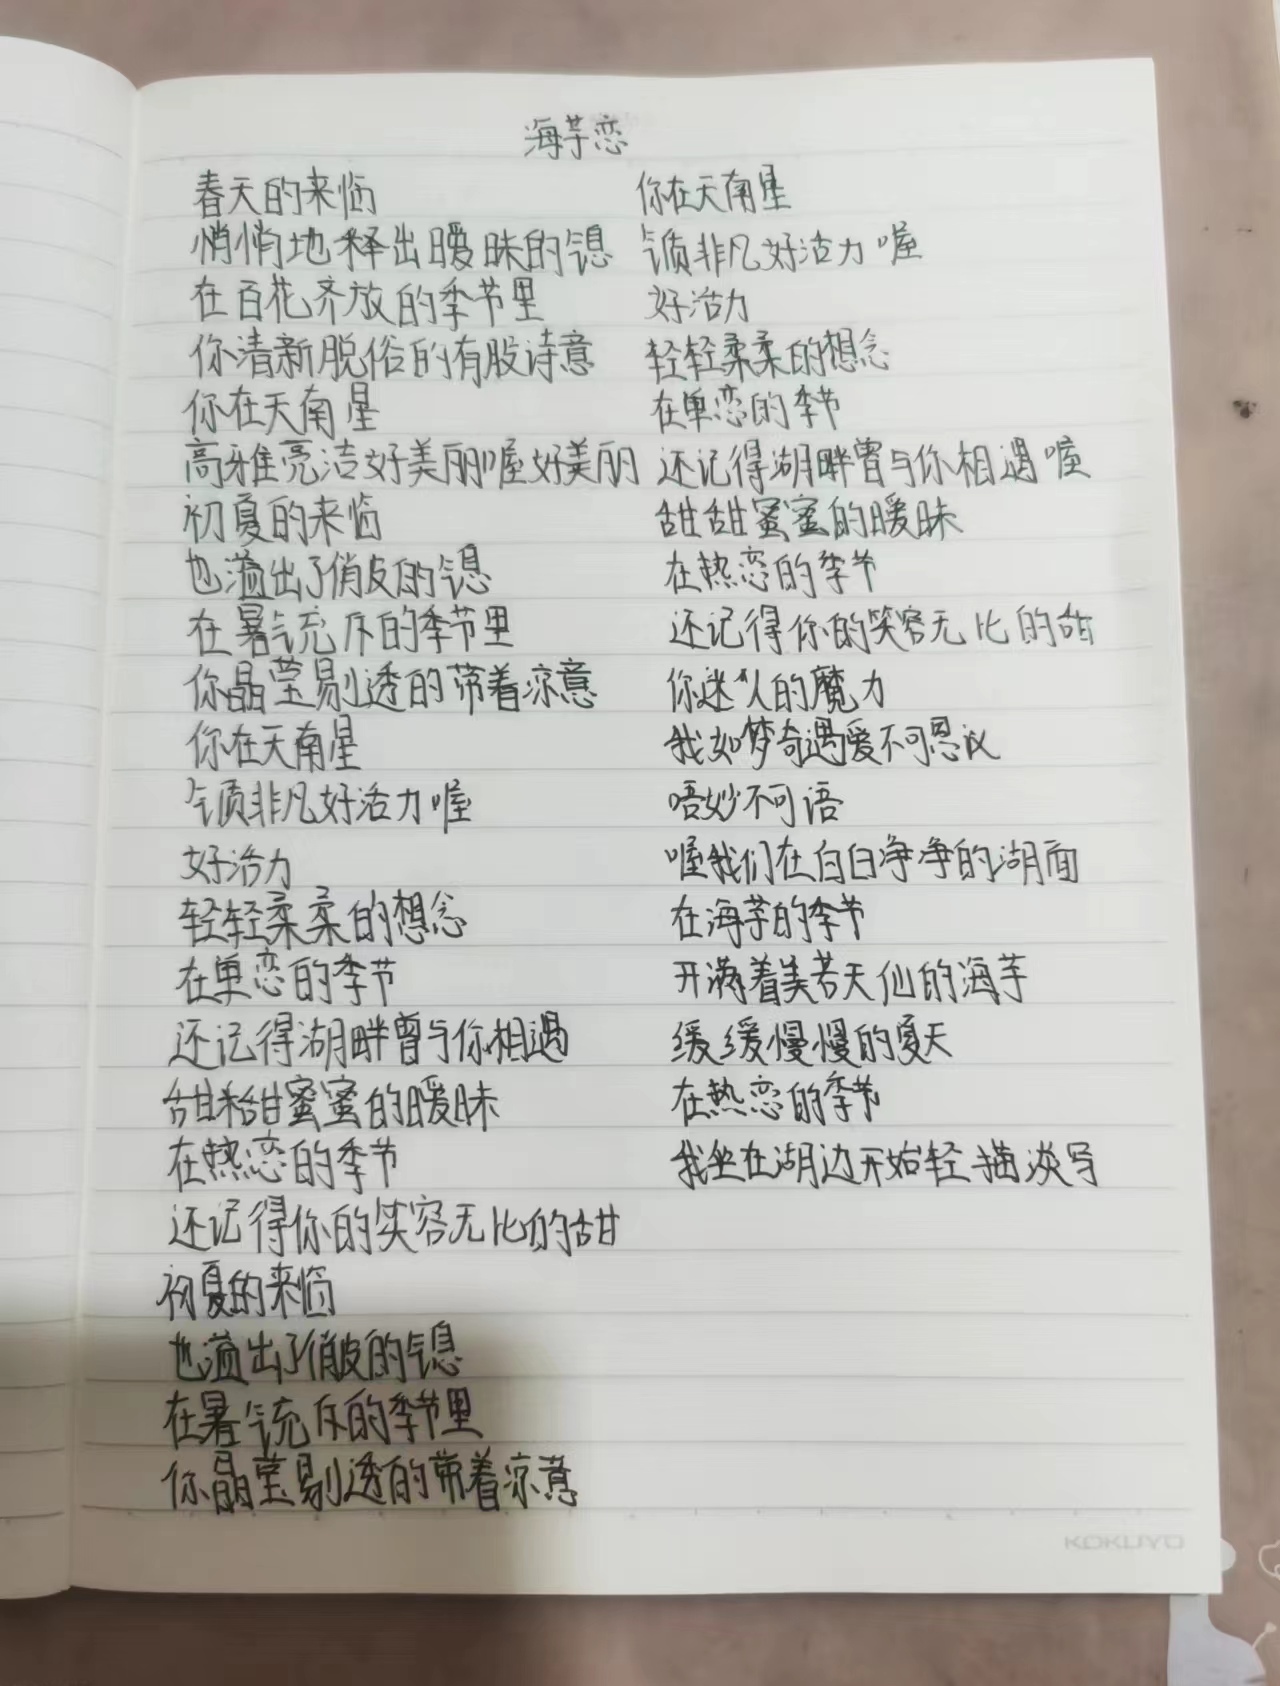 海芋恋
春天的来临
悄悄地释出暧昧的气息
在百花齐放的季节里
你清新脱俗的有股诗意
你在天南星
高雅亮洁好美丽喔好美丽
初夏的来临
也溢出了俏皮的气息
在暑气充斥的季节里
你晶莹剔透的带着凉意
你在天南星
气质非凡好活力喔
好活力
轻轻柔柔的想念
在单恋的季节
还记得湖畔曾与你相遇
甜甜蜜蜜的暧昧
在热恋的季节
还记得你的笑容无比的甜
初夏的来临
也溢出了俏皮的气息
在暑气充斥的季节里
你晶莹剔透的带着凉意
你在天南星
气质非凡好活力喔
好活力
轻轻柔柔的想念
在单恋的季节
还记得湖畔曾与你相遇喔
甜甜蜜蜜的暧昧
在热恋的季节
还记得你的笑容无比的甜
你迷人的魔力
我如梦奇遇爱不可思议
唔妙不可语
喔我们在白白净净的湖面
在海芋的季节
开满着美若天仙的海芋
缓缓慢慢的夏天
在热恋的季节
我坐在湖边开始轻描淡写
KOKUYO